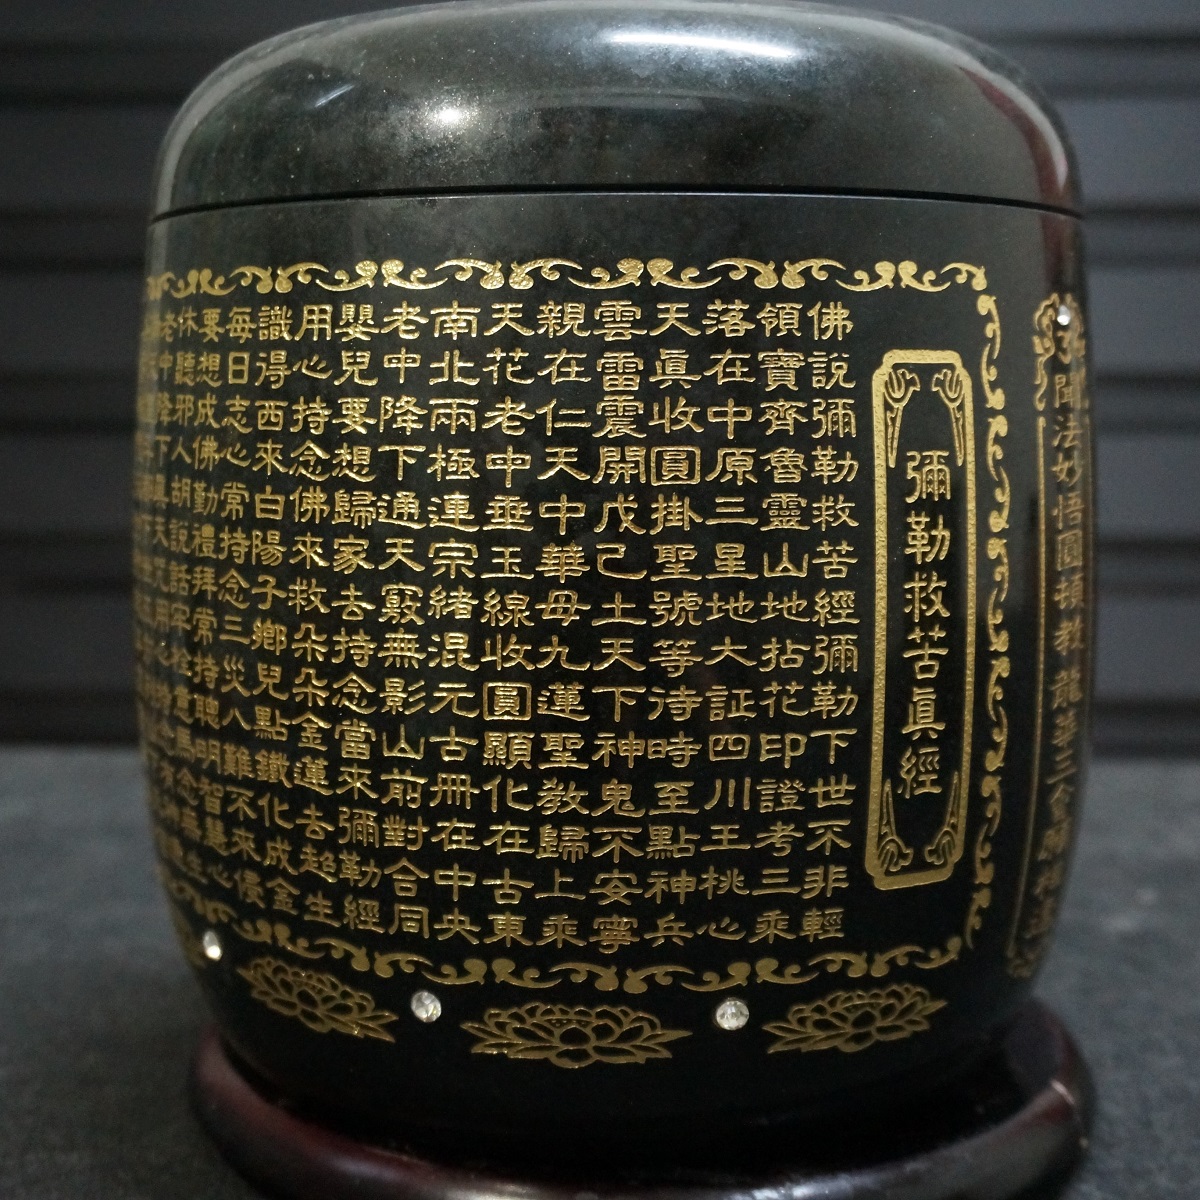 聞法妙悟圓頓教龍華三會
彌勒救苦眞經
佛說彌勒救苦經彌勒下世不非輕
領寶齊魯靈山地拈花印證考三乘
落在中原三星地大証四川王桃心
天眞收圓掛聖號等待時至點神兵
雲雷震開戊己土天下神鬼不安寧
親在仁天中華母九蓮聖教歸上乘
天花老中垂玉線收圓顯化在古東
南北兩極連宗緒混元古冊在中央
老中降下通天竅無影山前對合同
嬰兒要想歸家去持念當來彌勒經
用心持念佛來救朵朵金蓮去超生
識得西來白陽子鄉兒點鐵化成金
每日志心常持念三災八難不來侵
要想成佛勤禮拜常持聰明智慧心
休聽邪人胡說話牢拴意馬
老中降下眞天